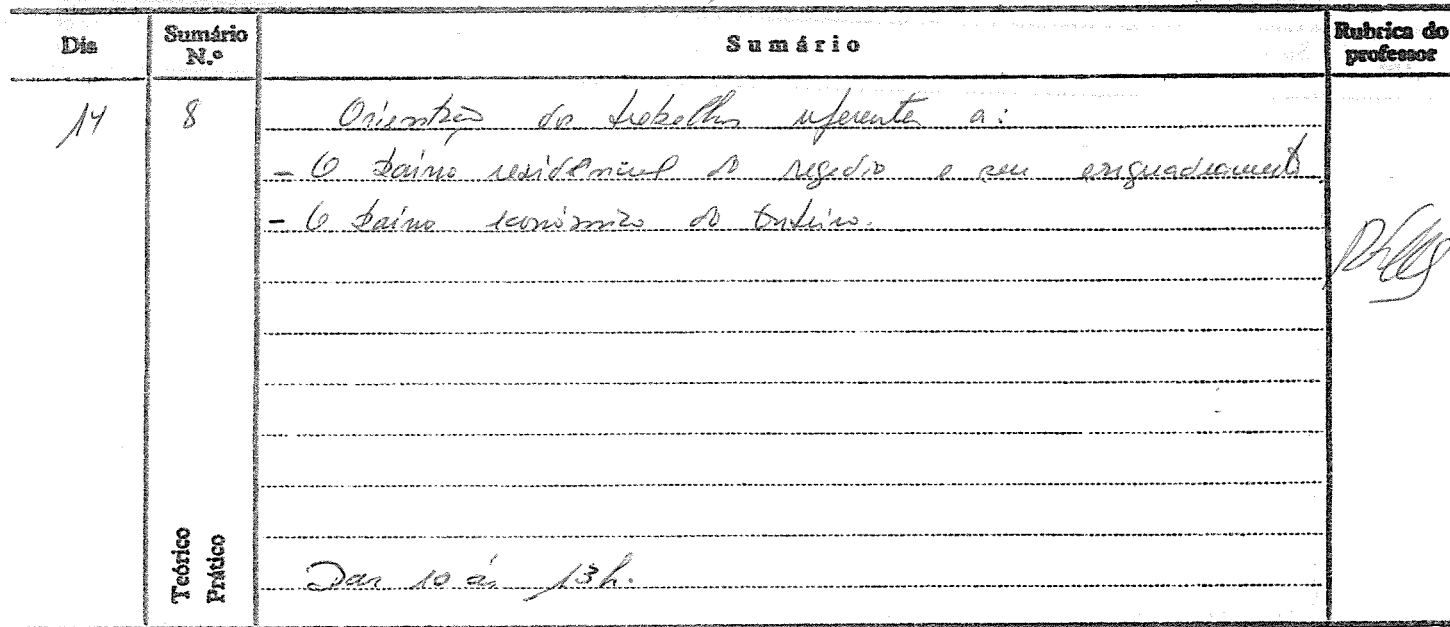 Dia
Sumário N.º
Sumário
Rubrica do professor
14
8
Orientação dos trabalhos referentes a:
- O bairro residencial do regedio e seu enquadramento
- O bairro económico do Outeiro.
Teórico
Prático
Das 10 às 13h.